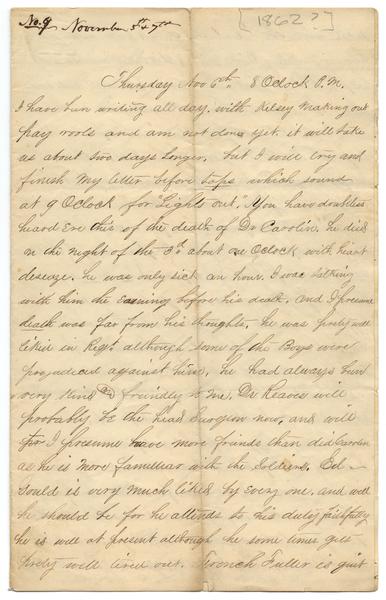 No. 9 November 5th & 7th
[1862?]
Thursday Nov 6th, 8 Oclock P.M.
I have bun writing all day. with Kelsey making out
pay rools and am not done yet. it will take
us about two days longer. but I will try and
finish my letter before taps which sound
at 9 Oclock for "Lights out." You have doubtless
heard ere this of the death of Dr Carolin. he died
on the night of the 3d about one Oclock with heart
deseaze. he was only sick an hour. I was sitting
with him the evening before his death. and I presume
death was far from his thoughts. he was prety well
liked in Regt. although some of the Boys were
prejudiced against him. he had always bun
very kind and friendly to me. Dr Reaves will
probably be the head Surgeon now, and will
I presume have more friends than did Carolin
as he is more familliar with the Soldiers. Ed-
sould is very much liked by every one. and well
he should be for he attends to his duty faithfully
he is well at present although he some times gets
prety well tired out. French Fuller is quit